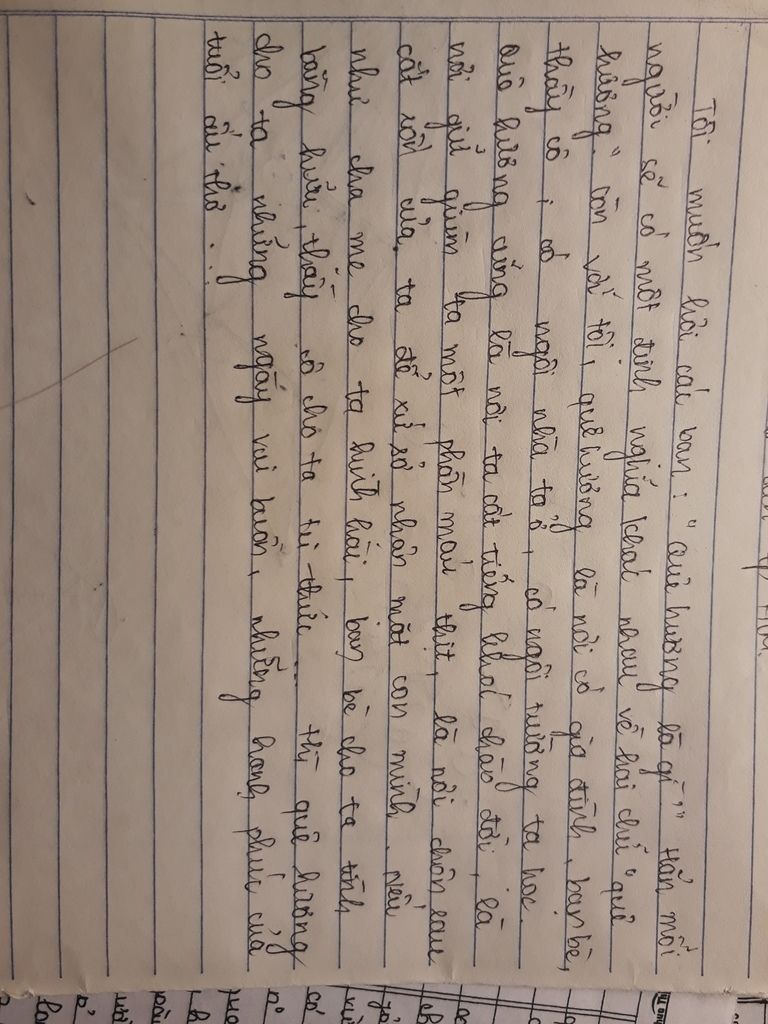 Tôi muốn hỏi các bạn: "Quê hương là gì?" Hẳn mỗi
người sẽ có một định nghĩa khác nhau về hai chữ "quê
hương". Còn với tôi, quê hương là nơi có gia đình, bạn bè,
thầy cô; có ngôi nhà ta ở, có ngôi trường ta học.
Quê hương cũng là nơi ta cất tiếng khóc chào đời, là
nơi giữ giùm ta một phần máu thịt, là nơi chôn rau
cắt rốn của ta để xứ sở nhận mặt con mình. Nếu
như cha mẹ cho ta hình hài, bạn bè cho ta tình
bằng hữu, thầy cô cho ta tri thức ... thì quê hương
cho ta những ngày vui buồn, những hạnh phúc của
tuổi ấu thơ ...